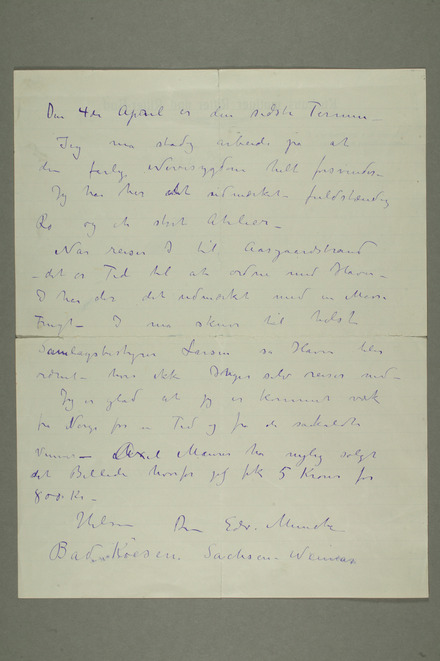 Den 4de April er den sidste Termin –
Jeg må stadig arbeide på at
den farlige Nervesygdom helt forsvinder –
Jeg har her det udmærket – fuldstændig
Ro og et stort Atelier –
Når reiser I til Aasgaardstrand
– det er Tid til at ordne med Haven –
I har der det udmærket med en Masse
Frugt – I må skrive til
Samlagsbestyrer Larsen så Haven blir
ordnet – hvis ikke Inger selv reiser ned –
Jeg er glad at jeg er kommet væk
fra Norge for en Tid og fra de såkaldte
Venner – Axel Maurer har nylig solgt
det Billede hvorfor jeg fik 5 Kroner for
800 Kr –
Hilsen Din Edv. Munch
Bad Kösen. Sachsen. Weimar